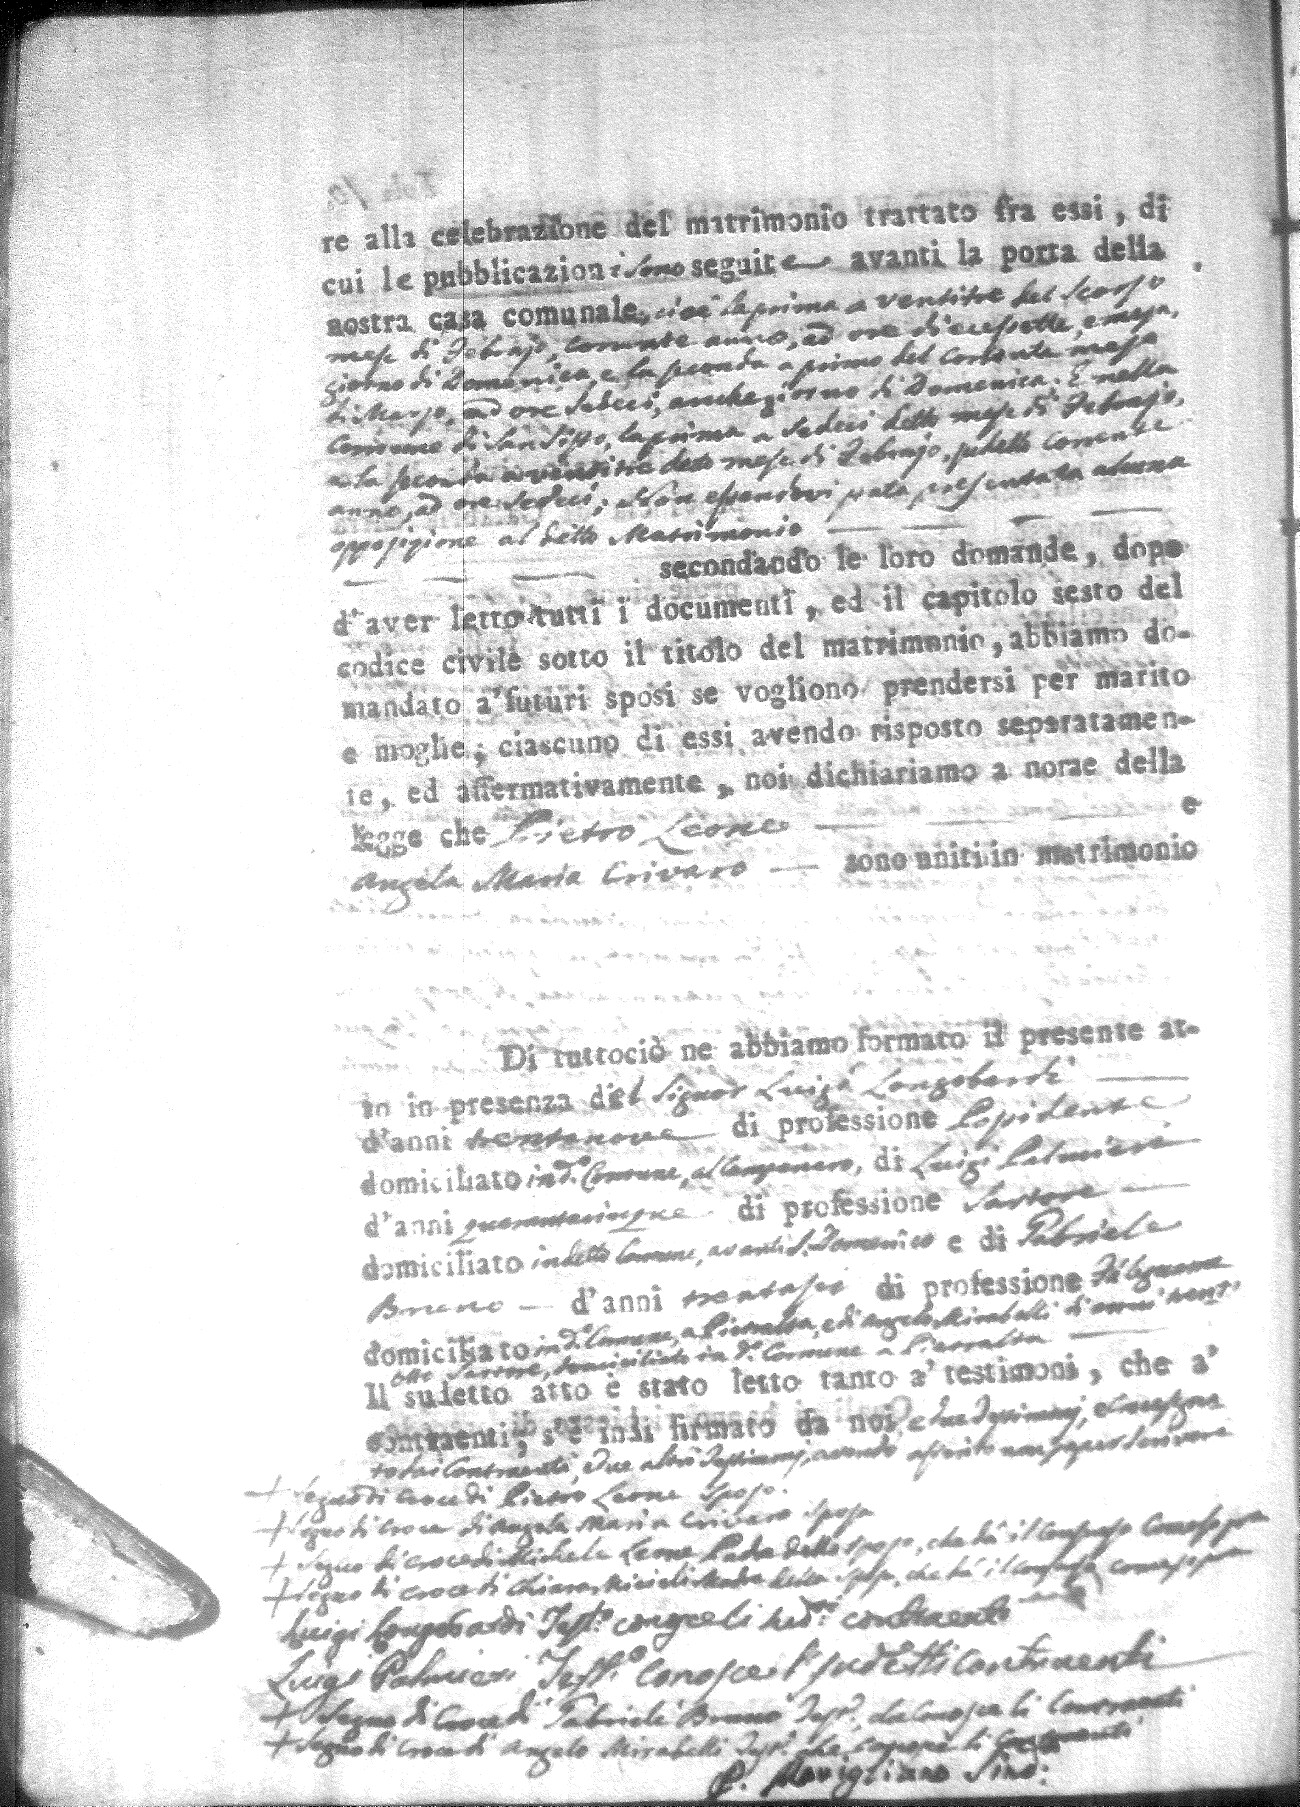 re alla celebrazione del matrimonio trattato fra essi, di
cui le pubblicazioni sono seguite avanti la porta della
nostra casa comunale, cioè la prima a ventitre del scorso
mese di Febrajo, corrente anno, ad ore diecessette, e meza,
giorno di Domenica, e la seconda a primo del corrente mese
di Marzo, ad ore sedeci, anche giorno di Domenica. E nella
Comune di San Sisto, la prima a sedeci detto mese di Febrajo,
e la seconda a ventitre detto mese di Febrajo, pdetto corrente
anno, ad ore sedeci; Non essendovi stata presentata alcuna
opposizione al detto Matrimonio
secondando le loro domande, dopo
d'aver letto tutti i documenti, ed il capitolo sesto del
codice civile sotto il titolo del matrimonio, abbiamo do-
mandato a' futuri sposi se vogliono prendersi per marito
e moglie; ciascuno di essi avendo risposto separatamen-
te, ed affermativamente, noi dichiariamo a norae della
legge che Pietro Leone e
Angela Maria Crivaro sono uniti in matrimonio
Di tuttociò ne abbiamo formato il presente at-
to in presenza del Signor Luigi Longobardi
d'anni trentanove di professione
domiciliato in d.º Comune, al Campanaro, di Luigi Palmieri
d'anni quarantacinque di professione Sartore
domiciliato in detto Comune, avanti S. Domenico e di Gabriele
Bruno d'anni trentasei di professione Falegname
domiciliato in d.º Comune, a Pietralta, e di Angelo Mirabelli d'anni trent'
otto Sartore, domiciliato in d.º Comune a Pietralta
Il sudetto atto è stato letto tanto a' testimoni, che a'
contraenti, s'è indi firmato da noi, e due Testimonj,
Contraenti, e due altri Testimonj, avendo asserito non saper scrivere
+ Segno di croce di Pietro Leone sposo.
+ Segno di croce di Angela Maria Crivaro sposa
+ Segno di croce di Michele Leone Padre dello sposo, che dà il consenso come sopra
+ Segno di croce di Chiara Madre della sposa, che dà il consenso come sopra
Luigi Longobardi Test.º conosce li sud.ti contraenti
Luigi Palmieri Test.º conosce i sudetti contraenti
+ Segno di Croce di Gabriele Bruno Test.º che conosce li Contraenti
+ Segno di croce di Angelo Mirabelli Test.º che conosce li Contraenti
P. Movigliano Sind: